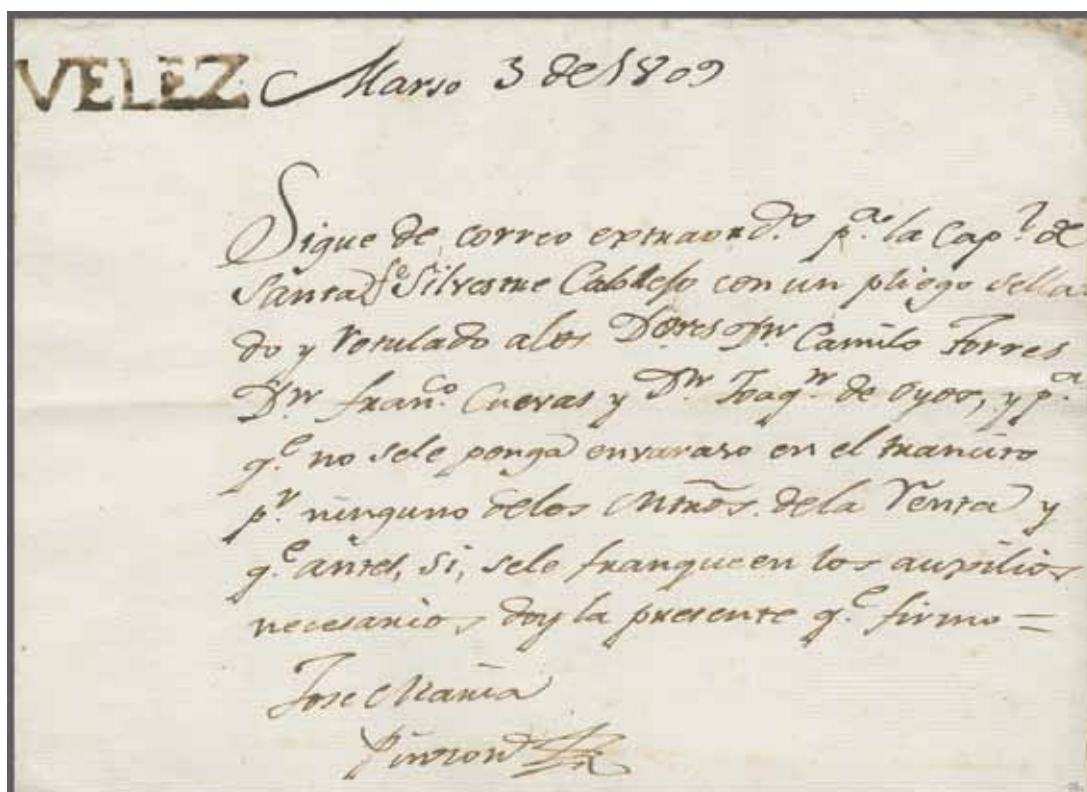 VELEZ Marso 3 de 1809
Sigue de correo extraord.º p.ª la Cap.l de
Santa fe Silvestre con un pliego sella
do y rotulado a los D.ores D.n Camilo Torres
D.n Fran.co Cuevas y D.n Joaq.n de Oyos, y p.ª
q.e no sele ponga envaraso en el trancito
p.r ninguno delos Mtros. dela Renta y
q.e antes, si, sele franqueen los auxilios
necesarios, doy la presente q.e firmo =
Jose Maria